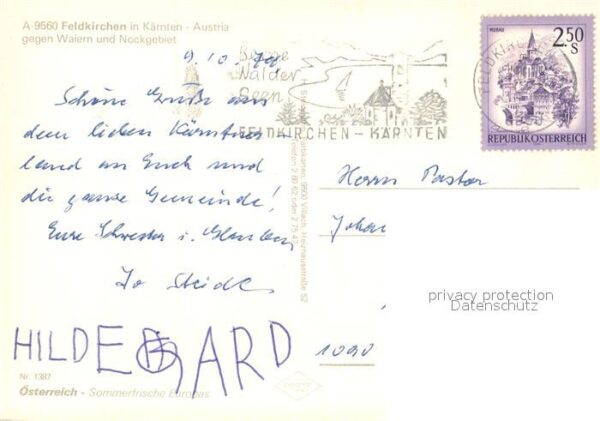 A-9560 Feldkirchen in Kärnten - Austria
gegen Waiern und Nockgebiet
9.10.79
Schöne Grüße aus
dem lieben Kärntner
land an Euch und
die ganze Gemeinde!
Eure Schwester i. Glauben
HILDEGARD
Nr. 1387
Österreich - Sommerfrische Europas
Berge
Wälder
Seen
FELDKIRCHEN - KÄRNTEN
MURAU
2.50
S
REPUBLIK ÖSTERREICH
Herrn Pastor
Johan
privacy protection
Datenschutz
1090